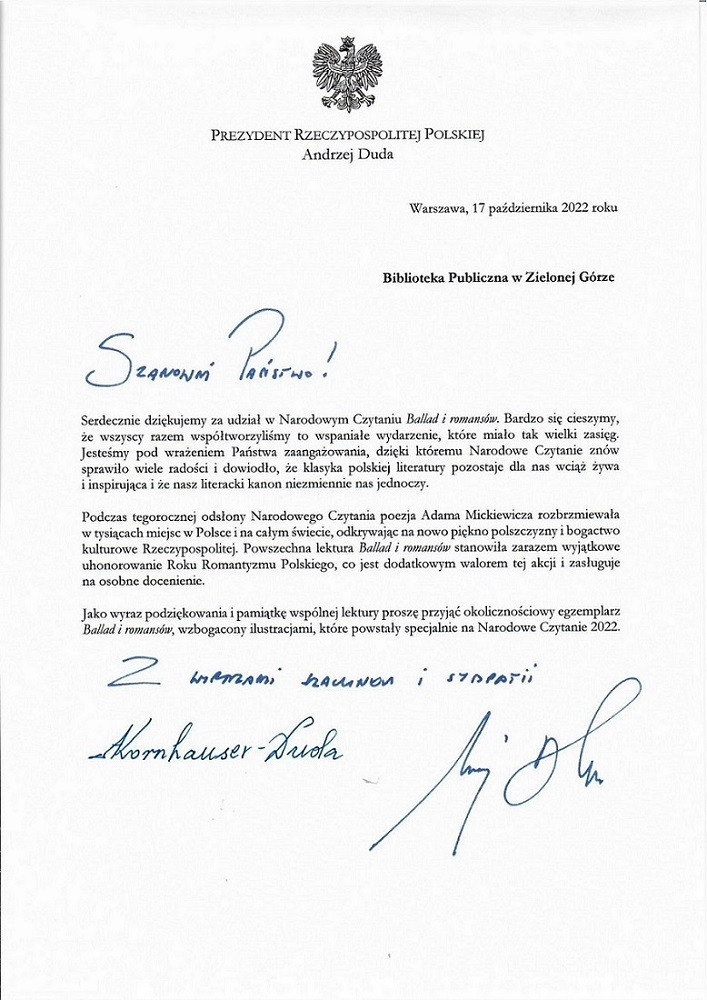 PREZYDENT RZECZYPOSPOLITEJ POLSKIEJ
Andrzej Duda
Warszawa, 17 października 2022 roku
Biblioteka Publiczna w Zielonej Górze
Szanowni Państwo!
Serdecznie dziękujemy za udział w Narodowym Czytaniu Ballad i romansów. Bardzo się cieszymy,
że wszyscy razem współtworzyliśmy to wspaniałe wydarzenie, które miało tak wielki zasięg.
Jesteśmy pod wrażeniem Państwa zaangażowania, dzięki któremu Narodowe Czytanie znów
sprawiło wiele radości i dowiodło, że klasyka polskiej literatury pozostaje dla nas wciąż żywa
i inspirująca i że nasz literacki kanon niezmiennie nas jednoczy.
Podczas tegorocznej odsłony Narodowego Czytania poezja Adama Mickiewicza rozbrzmiewała
w tysiącach miejsc w Polsce i na całym świecie, odkrywając na nowo piękno polszczyzny i bogactwo
kulturowe Rzeczypospolitej. Powszechna lektura Ballad i romansów stanowiła zarazem wyjątkowe
uhonorowanie Roku Romantyzmu Polskiego, co jest dodatkowym walorem tej akcji i zasługuje
na osobne docenienie.
Jako wyraz podziękowania i pamiątkę wspólnej lektury proszę przyjąć okolicznościowy egzemplarz
Ballad i romansów, wzbogacony ilustracjami, które powstały specjalnie na Narodowe Czytanie 2022.
Z wyrazami szacunku i sympatii
Kornhauser-Duda